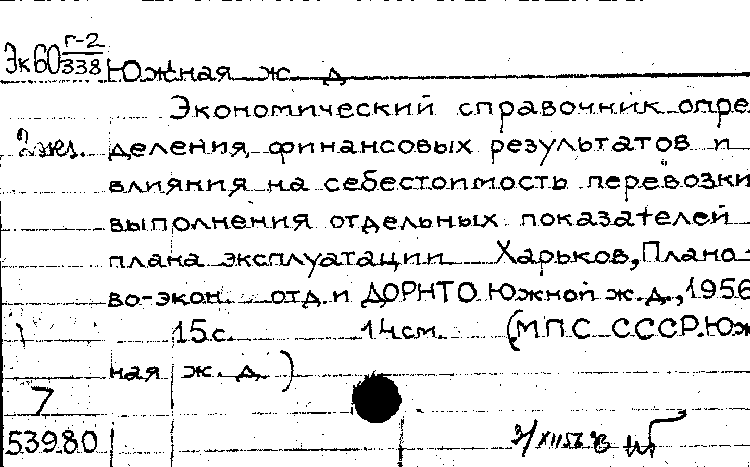 Эк60 г-2/338 Южная ж. д.
Экономический справочник опре
2 экз. деления финансовых результатов и
влияния на себестоимость перевозки
выполнения отдельных показателей
плана эксплуатации Харьков, Плано
во-экон. отд. и ДОРНТО Южной ж. д., 1956
15 с. 14 см. (МПС СССР. Юж
ная ж. д.)
7
53980